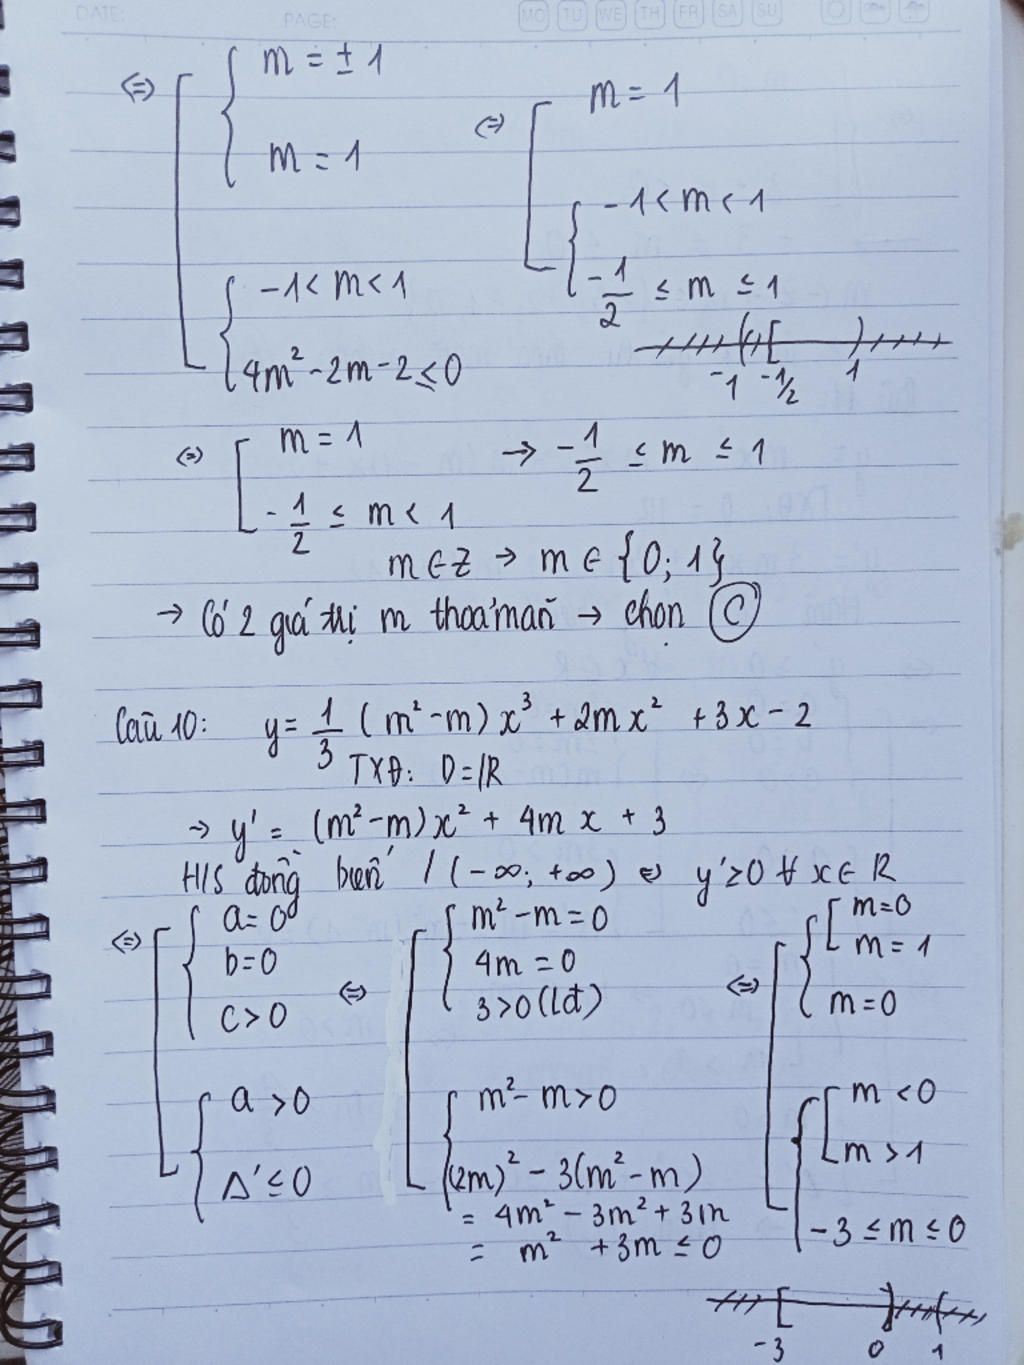 DATE: PAGE: MO TU WE TH FR SA SU
⇔ [ { m = ± 1
m = 1
{ -1 < m < 1
4m² - 2m - 2 ≤ 0
⇔ [ m = 1
{ -1 < m < 1
-1/2 ≤ m ≤ 1
-1 -1/2 1
⇔ [ m = 1
-1/2 ≤ m < 1
→ -1/2 ≤ m ≤ 1
m ∈ Z → m ∈ {0; 1}
→ Có 2 giá trị m thoả mãn → chọn C
Câu 10: y = 1/3 (m² - m) x³ + 2mx² + 3x - 2
TXĐ: D = R
→ y' = (m² - m)x² + 4mx + 3
H/S đồng biến / (-∞; +∞) ⇔ y' ≥ 0 ∀ x ∈ R
⇔ [ { a = 0
b = 0
c > 0
{ a > 0
Δ' ≤ 0
⇔ [ { m² - m = 0
4m = 0
3 > 0 (lđ)
{ m² - m > 0
(2m)² - 3(m² - m)
= 4m² - 3m² + 3m
= m² + 3m ≤ 0
⇔ [ { [ m = 0
m = 1
m = 0
{ [ m < 0
m > 1
-3 ≤ m ≤ 0
-3 0 1